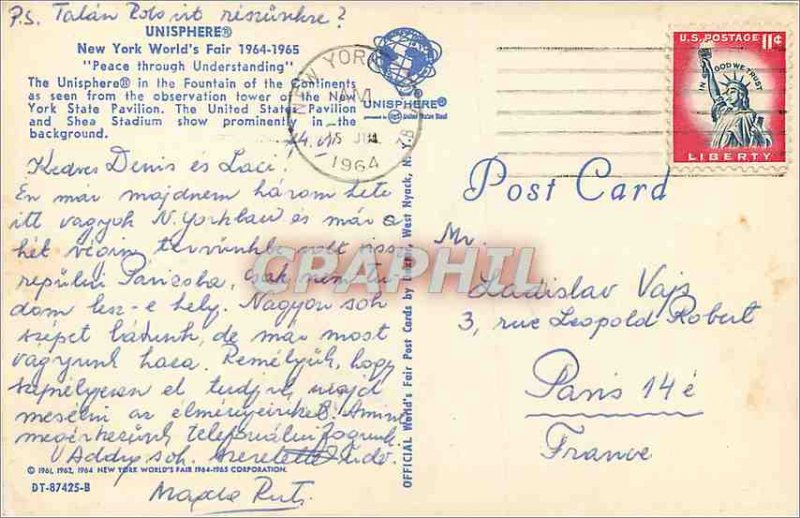 P.S. Talán Bobo itt részünkre?
UNISPHERE®
New York World's Fair 1964-1965
"Peace through Understanding"
The Unisphere® in the Fountain of the Continents
as seen from the observation tower of the New
York State Pavilion. The United States Pavilion
and Shea Stadium show prominently in the
background.
UNISPHERE®
NEW YORK
AM
15
1964
U.S. POSTAGE 11¢
IN GOD WE TRUST
LIBERTY
Kedves Denis és Laci!
Én már majdnem három hete
itt vagyok N.Yorkban és már a
hét végén tervünkbe volt vissza
repülni Párizsba, csak nem tu
dom lesz-e hely. Nagyon sok
szépet láttunk, de már most
vagyunk haza. Reméljük, hogy
személyesen el tudjuk majd
mesélni az élményeinket. Amint
megérkezünk telefonálni fogunk
Addig sok szeretettel
Magda Ruti
© 1961, 1962, 1964 NEW YORK WORLD'S FAIR 1964-1965 CORPORATION.
DT-87425-B
OFFICIAL World's Fair Post Cards by Dexter, West Nyack, N.Y.
Post Card
CPAPHIL
Mr.
Ladislav Vajs
3, rue Leopold Robert
Paris 14è
France